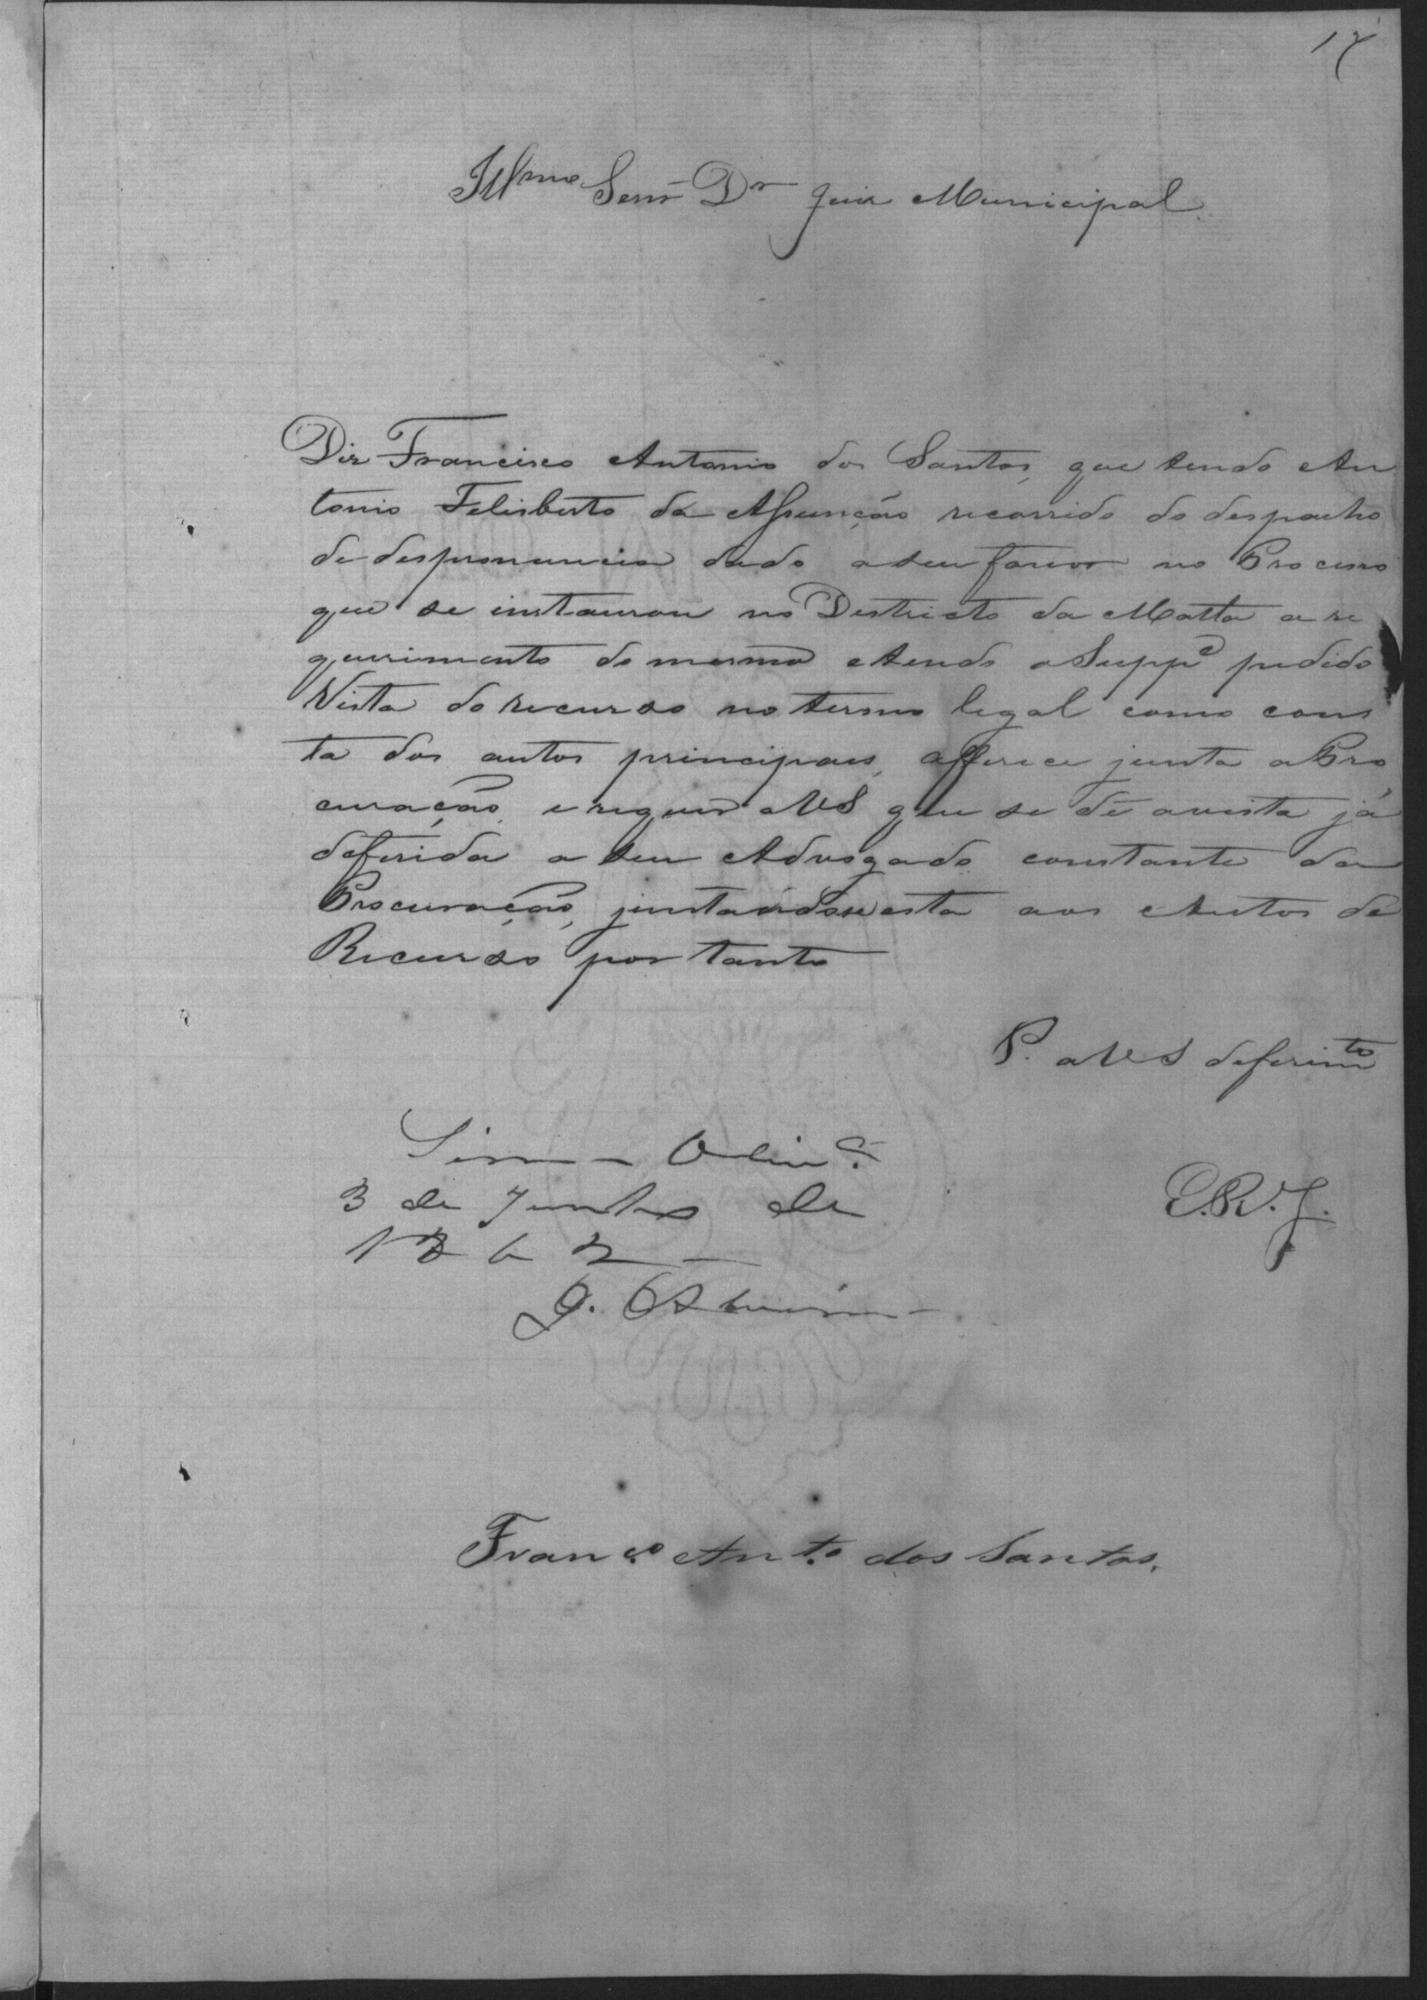 17
Illmo Senr Dr Juiz Municipal
Diz Francisco Antonio dos Santos, que tendo An
tonio Felisberto da Assumção recorrido do despacho
de despronuncia dado a seu favor no Processo
que se instaurou no Destricto da Matta a re
querimento do mesmo e tendo o Suppe pedido
Vista do recurso no termo legal como cons
ta dos autos principaes, offerece junta a Pro
curação, e requer a VS que se dê a vista já
deferida a seu Advogado constante da
Procuração, juntandose esta aos Autos de
Recurso por tanto
P. a VS deferimto
Sim
3 de Junho de
1862
E.R.J.
Franco Anto dos Santos.